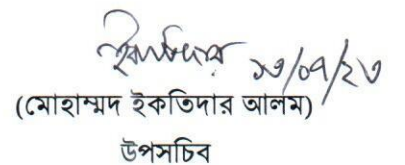 ইকতিদার ১৩/০৭/২৩
(মোহাম্মদ ইকতিদার আলম)
উপসচিব